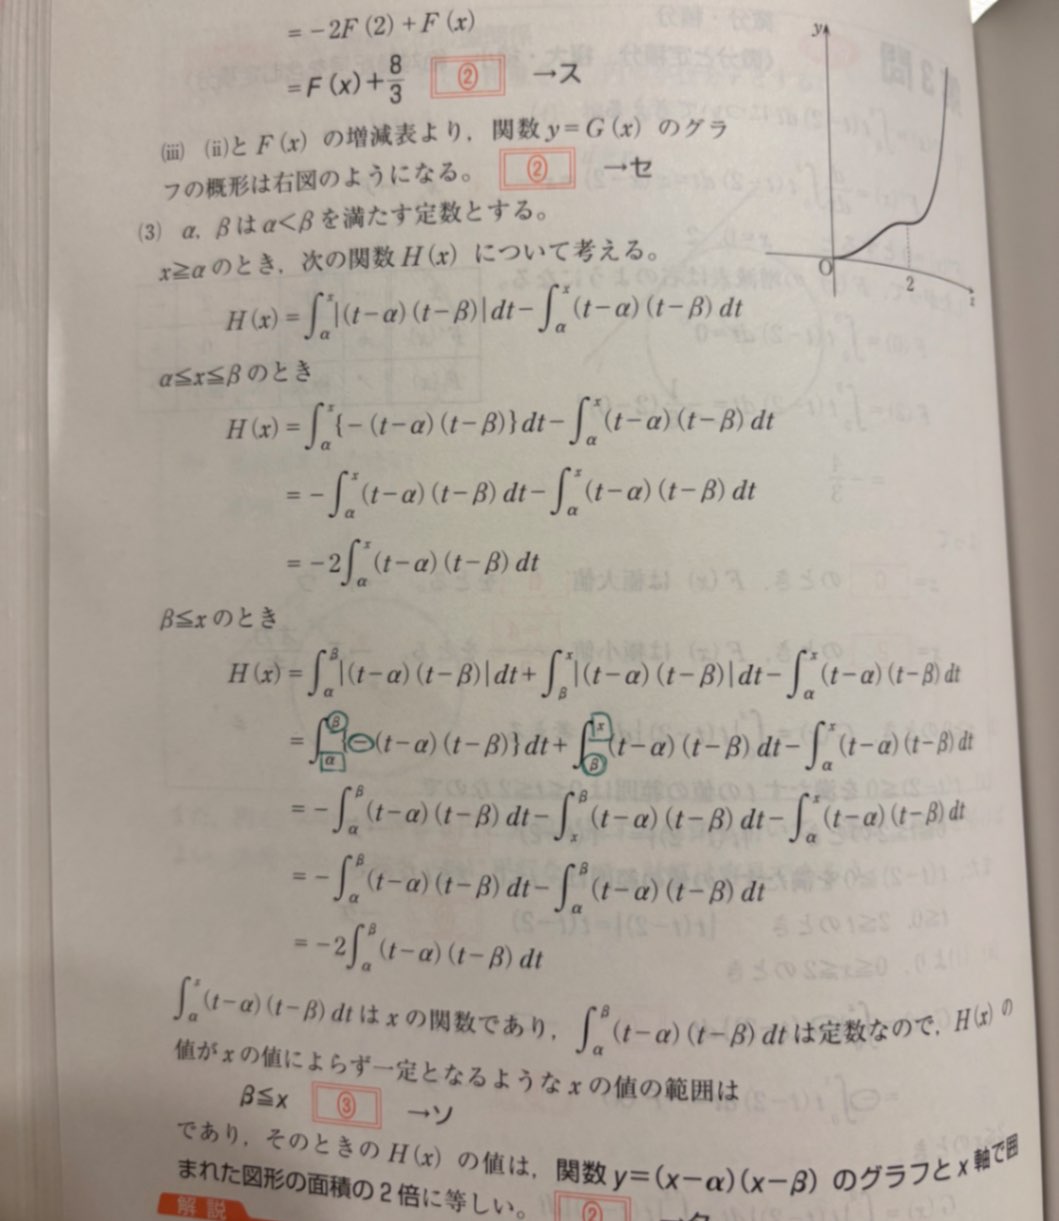 = −2F(2) + F(x)
= F(x) + 8/3 ② →ス
(iii) (ii)とF(x)の増減表より，関数y=G(x)のグラ
フの概形は右図のようになる。 ② →セ
y
O
2
x
(3) α，βはα<βを満たす定数とする。
x≧αのとき，次の関数H(x)について考える。
H(x) = ∫_α^x |(t−α)(t−β)| dt − ∫_α^x (t−α)(t−β) dt
α≦x≦βのとき
H(x) = ∫_α^x {−(t−α)(t−β)} dt − ∫_α^x (t−α)(t−β) dt
= −∫_α^x (t−α)(t−β) dt − ∫_α^x (t−α)(t−β) dt
= −2∫_α^x (t−α)(t−β) dt
β≦xのとき
H(x) = ∫_α^β |(t−α)(t−β)| dt + ∫_β^x |(t−α)(t−β)| dt − ∫_α^x (t−α)(t−β) dt
= ∫_α^β {−(t−α)(t−β)} dt + ∫_β^x (t−α)(t−β) dt − ∫_α^x (t−α)(t−β) dt
= −∫_α^β (t−α)(t−β) dt − ∫_x^β (t−α)(t−β) dt − ∫_α^x (t−α)(t−β) dt
= −∫_α^β (t−α)(t−β) dt − ∫_α^β (t−α)(t−β) dt
= −2∫_α^β (t−α)(t−β) dt
∫_α^x (t−α)(t−β) dtはxの関数であり，∫_α^β (t−α)(t−β) dtは定数なので，H(x)の
値がxの値によらず一定となるようなxの値の範囲は
β≦x ③ →ソ
であり，そのときのH(x)の値は，関数y=(x−α)(x−β)のグラフとx軸で囲
まれた図形の面積の2倍に等しい。 ② →タ
解説